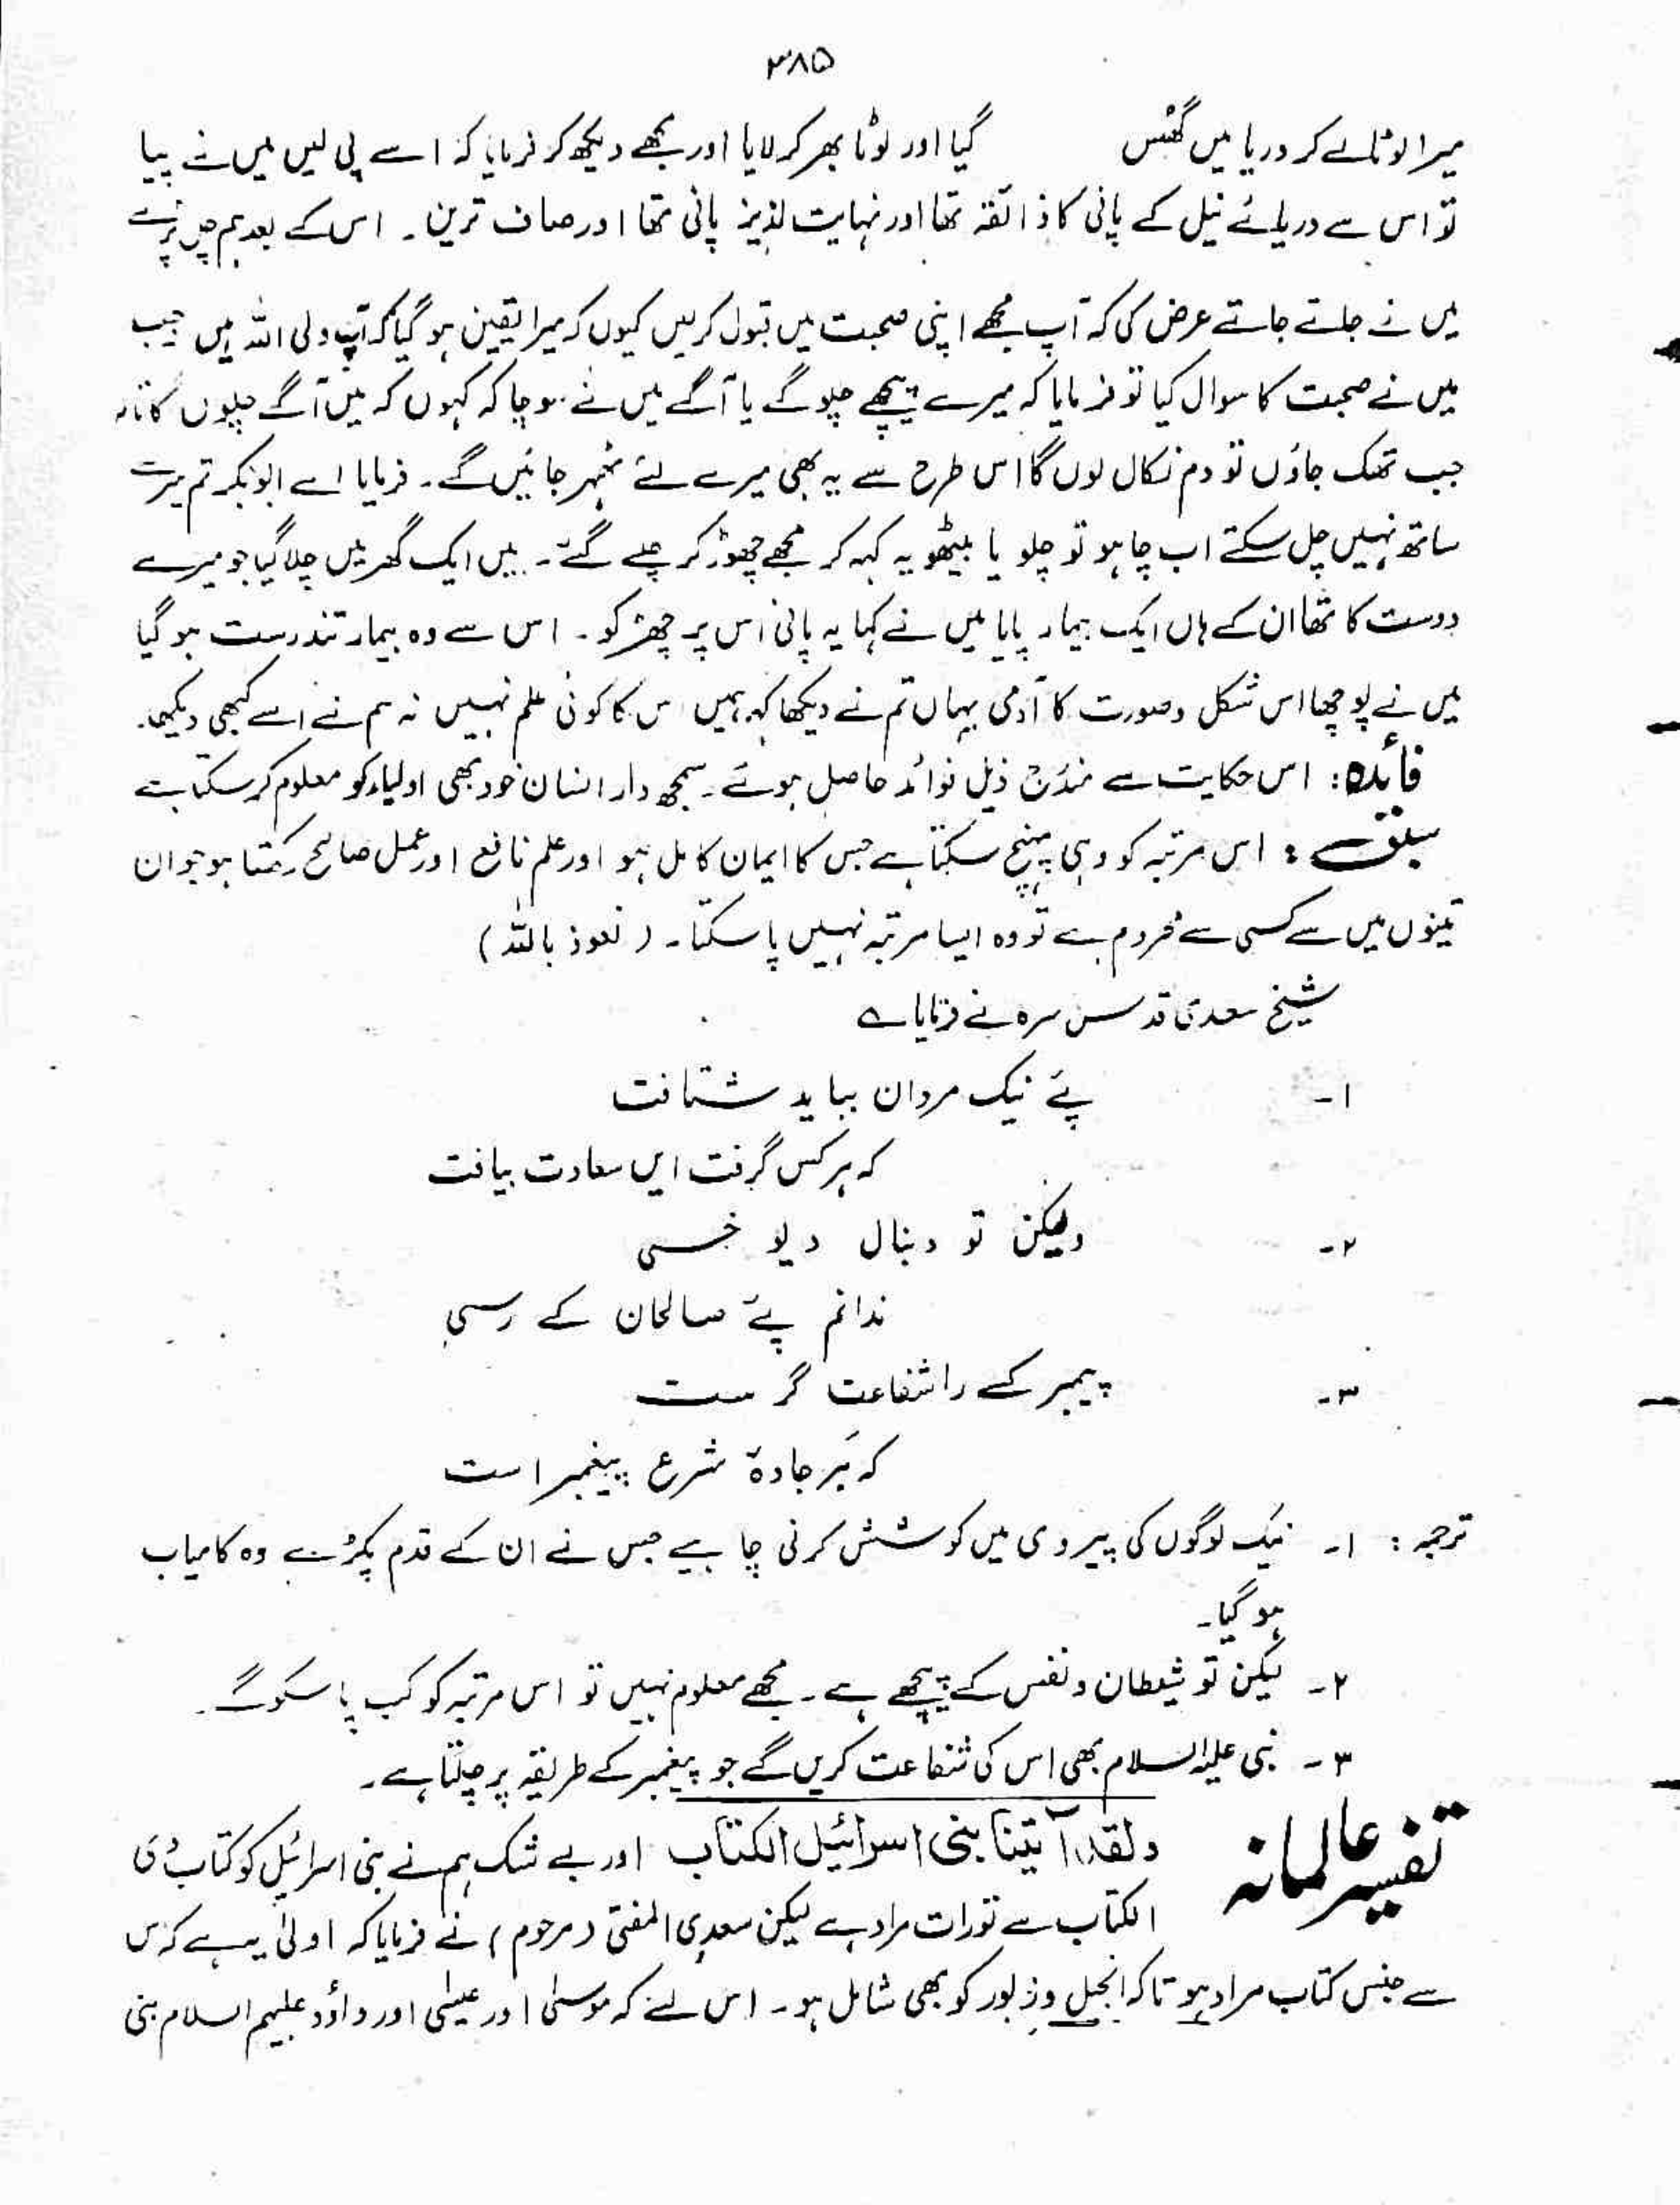 ۳۸۵
میرا لوٹا لے کر دریا میں گھس گیا اور لوٹا بھر کر لایا اور مجھے دیکھ کر فرمایا کہ اسے پی لیں میں نے پیا
تو اس سے دریائے نیل کے پانی کا ذائقہ تھا اور نہایت لذیذ پانی تھا اور صاف ترین۔ اس کے بعد ہم چل پڑے
میں نے جاتے جاتے عرض کی کہ آپ مجھے اپنی صحبت میں قبول کریں کیوں کہ میرا یقین ہو گیا کہ آپ ولی اللہ ہیں جب
میں نے صحبت کا سوال کیا تو فرمایا کہ میرے پیچھے چلو گے یا آگے میں نے سوچا کہ کہوں کہ میں آگے چلوں گا تاکہ
جب تھک جاؤں تو دم نکال لوں گا اس طرح سے یہ بھی میرے لئے ٹھہر جائیں گے۔ فرمایا اے ابوبکر تم میرے
ساتھ نہیں چل سکتے اب چاہو تو چلو یا بیٹھو یہ کہہ کر مجھے چھوڑ کر چلے گئے۔ میں ایک گھر میں چلا گیا جو میرے
دوست کا تھا ان کے ہاں ایک بیمار پایا میں نے کہا یہ پانی اس پر چھڑکو۔ اس سے وہ بیمار تندرست ہو گیا
میں نے پوچھا اس شکل و صورت کا آدمی یہاں تم نے دیکھا کہا ہمیں اس کا کوئی علم نہیں نہ ہم نے اسے کبھی دیکھا۔
فائدہ: اس حکایت سے مندرجہ ذیل فوائد حاصل ہوئے۔ سمجھ دار انسان خود بھی اولیاء کو معلوم کر سکتا ہے
سبق: اس مرتبہ کو وہی پہنچ سکتا ہے جس کا ایمان کامل ہو اور علم نافع اور عمل صالح رکھتا ہو جو ان
تینوں میں سے کسی سے محروم ہے تو وہ ایسا مرتبہ نہیں پا سکتا۔ (نعوذ باللہ)
شیخ سعدی قدس سرہ نے فرمایا ؎
۱۔ پئے نیک مردان بباید شتافت
کہ ہر کس گرفت ایں سعادت بیافت
۲۔ ولیکن تو دنبال دیو خسی
ندانم پئے صالحان کے رسی
۳۔ پیمبر کسے را شفاعت گرست
کہ بَر جادۂ شرع پیغمبر است
ترجمہ: ۱۔ نیک لوگوں کی پیروی میں کوشش کرنی چاہیے جس نے ان کے قدم پکڑے وہ کامیاب
ہو گیا۔
۲۔ لیکن تو شیطان و نفس کے پیچھے ہے۔ مجھے معلوم نہیں تو اس مرتبہ کو کب پا سکو گے۔
۳۔ نبی علیہ السلام بھی اس کی شفاعت کریں گے جو پیغمبر کے طریقہ پر چلتا ہے۔
تفسیر عالمانہ ولقد آتینا بنی اسرائیل الکتاب اور بے شک ہم نے بنی اسرائیل کو کتاب دی
الکتاب سے تورات مراد ہے لیکن سعدی المفتی (مرحوم) نے فرمایا کہ اولیٰ یہ ہے کہ اس
سے جنس کتاب مراد ہو تاکہ انجیل و زبور کو بھی شامل ہو۔ اس لئے کہ موسیٰ اور عیسیٰ اور داؤد علیہم السلام بنی